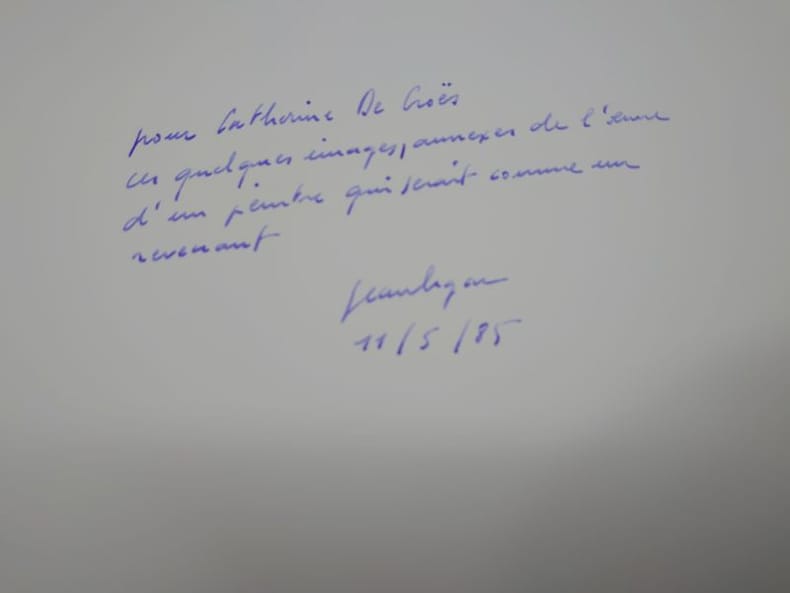 pour Catherine De Croës
ces quelques images, annexes de l'œuvre
d'un peintre qui serait comme un
revenant
11/5/85